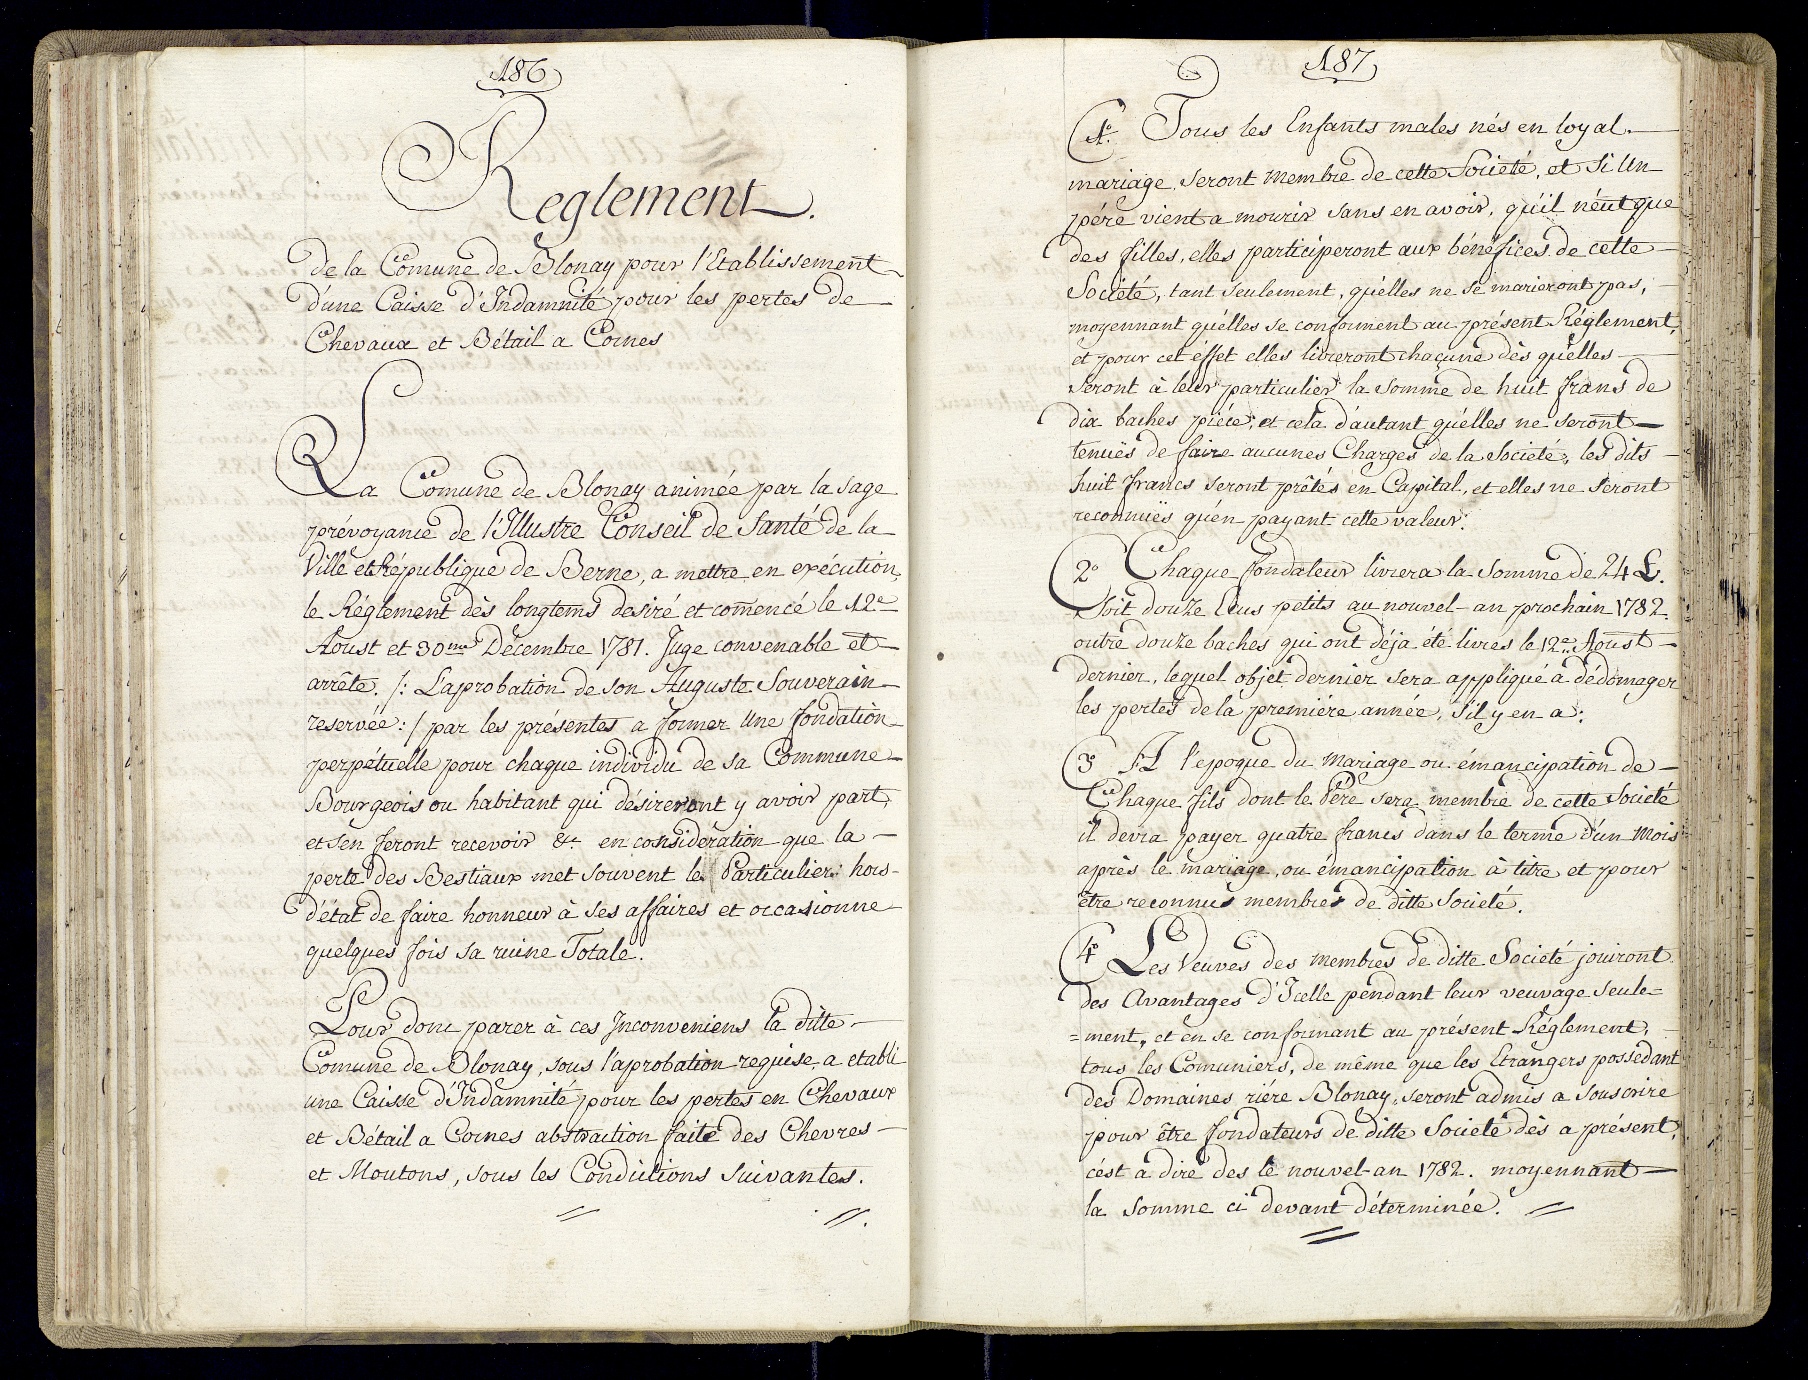 186
Reglement.
de la Comune de Blonay pour l'Etablissement
d'une Caisse d'Indamnité pour les pertes de
Chevaux et Bétail a Cornes
La Comune de Blonay animée par la sage
prévoyance de l'Illustre Conseil de Santé de la
Ville et République de Berne, a mettre en exécution,
le Réglement dès longtems desiré et comencé le 12e
Aoust et 30me Décembre 1781. Juge convenable et
arrête. /: L'aprobation de son Auguste Souverain
reservée :/ par les présentes a former Une fondation
perpétuelle pour chaque individu de sa Commune
Bourgeois ou habitant qui désireront y avoir part,
et s'en feront recevoir &c en consideration que la
perte des Bestiaux met souvent le Particulier hors-
d'état de faire honneur à ses affaires et occasionne
quelques fois sa ruine Totale.
Pour donc parer à ces Inconveniens la ditte
Comune de Blonay, sous l'aprobation requise, a etabli
une Caisse d'Indamnité pour les pertes en Chevaux
et Bétail a Cornes abstraction faite des Chevres
et Moutons, sous les Conditions Suivantes.
187
1o. Tous les Enfants males nés en loyal
mariage, seront membre de cette Societé, et Si Un
pére vient a mourir sans en avoir, qu'il n'eut que
des filles, elles participeront aux bénéfices de cette
Societé, tant seulement, qu'elles ne se marieront pas,
moyennant qu'elles se conforment au présent Réglement,
et pour cet éffet elles livreront chacune dès qu'elles
seront à leur particulier la Somme de huit frans de
dix baches piéce, et cela d'autant qu'elles ne seront
tenuës de faire aucunes Charges de la Societé, les dits
huit francs seront prêtés en Capital, et elles ne seront
reconnuës qu'en payant cette valeur.
2o Chaque fondateur livrera la Somme de 24 L.
Soit douze Ecus petits au nouvel-an prochain 1782.
outre douze baches qui ont déja été livrés le 12e Aoust
dernier, lequel objet dernier sera appliqué à dédomager
les pertes de la premiére année, s'il y en a.
3o A l'epoque du Mariage ou émancipation de
Chaque fils dont le Pére sera membre de cette Societé
il devra payer quatre francs dans le terme d'un Mois
après le mariage, ou émancipation à titre et pour
être reconnus membres de ditte Societé.
4o Les Veuves des membres de ditte Societé jouiront
des Avantages d'Icelle pendant leur veuvage Seule=
=ment, et en se conformant au présent Réglement,
tous les Comuniers, de même que les Etrangers possedant
des Domaines riére Blonay, seront admis a Souscrire
pour être fondateurs de ditte Societé dès a présent,
c'est a dire des le nouvel-an 1782. moyennant
la somme ci devant déterminée.